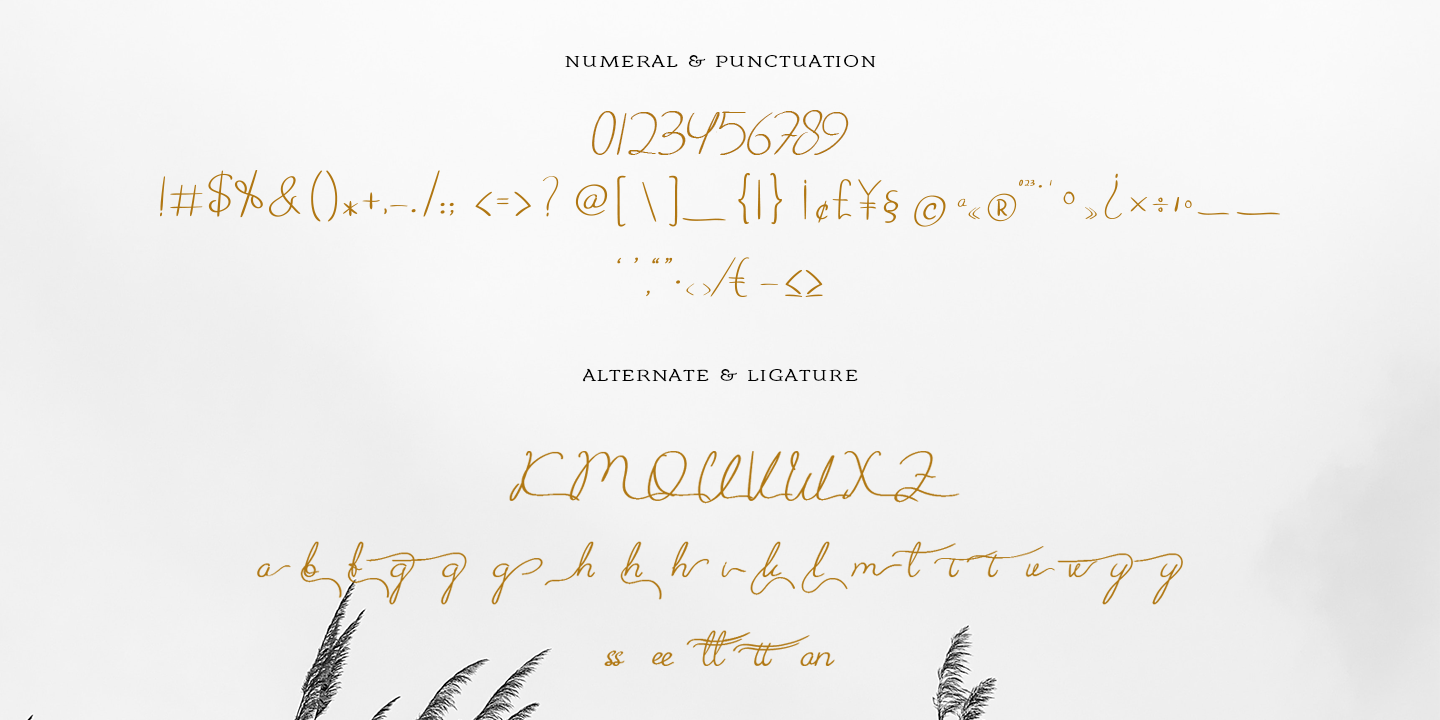 NUMERAL & PUNCTUATION
0123456789
!#$%&()*+,-./:; <=>? @[\]_ {|}¡¢£¥§ © ª«®⁰²³·¹ º»¿×÷/°__
‘ ’ ‚ “ ” • ‹ › ⁄ € − ≤≥
ALTERNATE & LIGATURE
K M O U V W X Z
a b f g g g h h h i k l m t t t u w y y
ss ee tt tt an